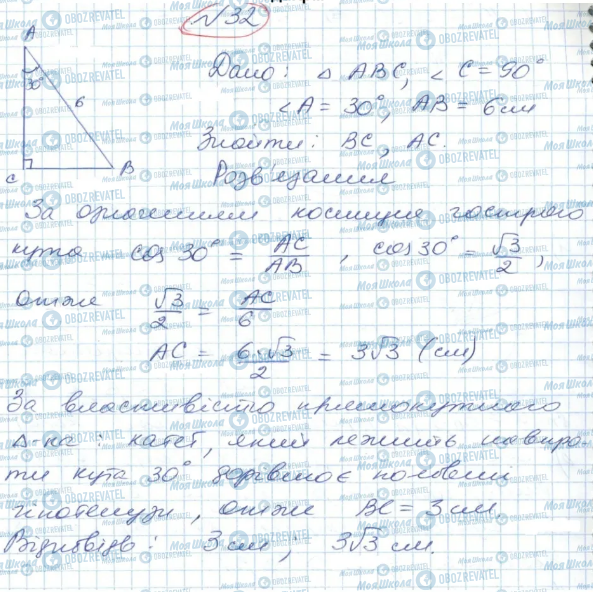 №32
A
30°
6
C
B
Дано: △ ABC, ∠ C = 90°
∠A = 30°, AB = 6 см
Знайти: BC, AC.
Розв'язання
За означенням косинуса гострого
кута cos 30° = AC/AB, cos 30° = √3/2,
отже √3/2 = AC/6
AC = 6·√3/2 = 3√3 (см)
За властивістю прямокутного
△-ка: катет, який лежить навпро-
ти кута 30° дорівнює половині
гіпотенузи, отже BC = 3 см.
Відповідь: 3 см; 3√3 см.
Моя Школа
OBOZREVATEL